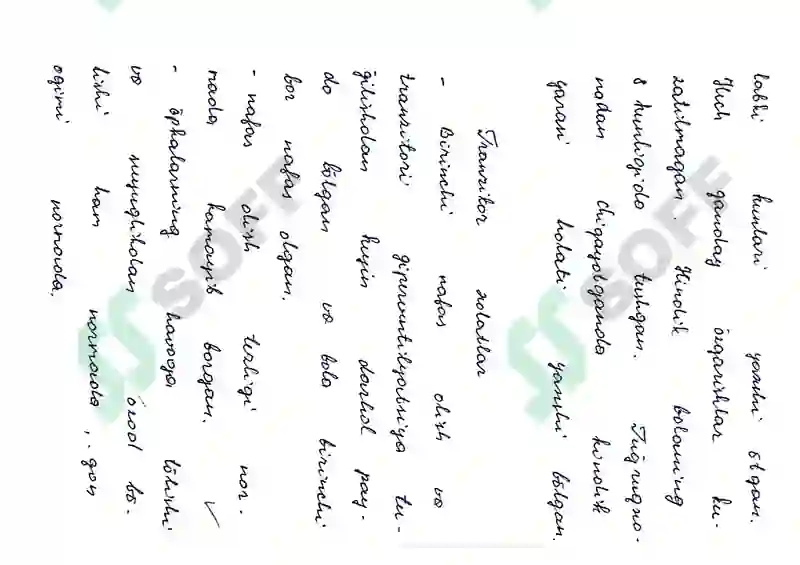 labki kunlari yaxshi ötgan.
Hech qanday özgarishlar ku-
zatilmagan. Kindik bolaning
8 kunligida tushgan. Tuğruqxo-
nadan chiqayotganda kindik
yarasi holati yaxshi bölgan.
Tranzitor xolatlar
- Birinchi nafas olish va
tranzitori giperventilyatsiya tu-
ğilishdan keyin darhol pay-
do bölgan va bola birinchi
bor nafas olgan.
- nafas olish tezligi nor-
mada kamayib borgan.
- öpkalarning havoga tölishi
va suyuqlikdan ozod bö-
lishi ham normada, qon
oqimi normada.
SOFF
SOFF